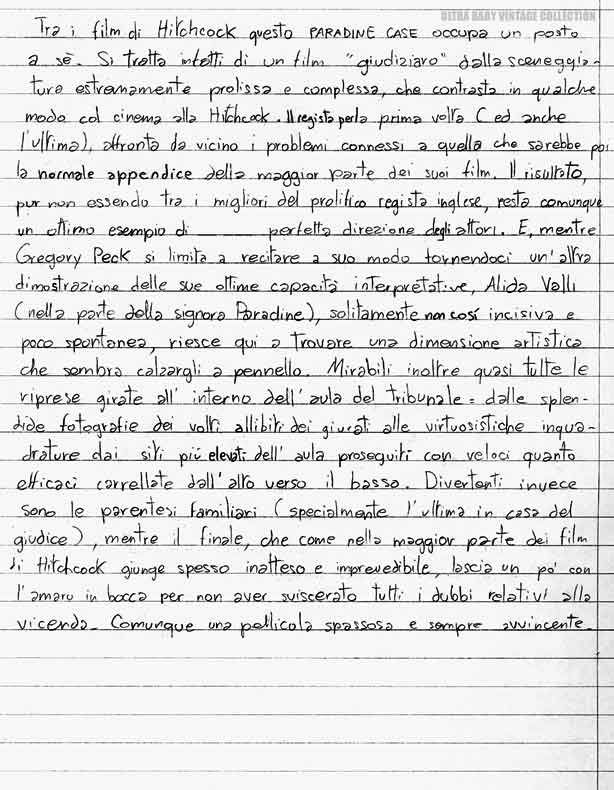 ULTRA BABY VINTAGE COLLECTION
Tra i film di Hitchcock questo PARADINE CASE occupa un posto
a sè. Si tratta infatti di un film "giudiziaro" dalla sceneggia-
tura estremamente prolissa e complessa, che contrasta in qualche
modo col cinema alla Hitchcock. Il regista per la prima volta (ed anche
l'ultima), affronta da vicino i problemi connessi a quella che sarebbe poi
la normale appendice della maggior parte dei suoi film. Il risultato,
pur non essendo tra i migliori del prolifico regista inglese, resta comunque
un ottimo esempio di perfetta direzione degli attori. E, mentre
Gregory Peck si limita a recitare a suo modo fornendoci un'altra
dimostrazione delle sue ottime capacità interpretative, Alida Valli
(nella parte della signora Paradine), solitamente non così incisiva e
poco spontanea, riesce qui a trovare una dimensione artistica
che sembra calzargli a pennello. Mirabili inoltre quasi tutte le
riprese girate all'interno dell'aula del tribunale: dalle splen-
dide fotografie dei volti allibiti dei giurati alle virtuosistiche inqua-
drature dai siti più elevati dell'aula proseguiti con veloci quanto
efficaci carrellate dall'alto verso il basso. Divertenti invece
sono le parentesi familiari (specialmente l'ultima in casa del
giudice), mentre il finale, che come nella maggior parte dei film
di Hitchcock giunge spesso inatteso e imprevedibile, lascia un po' con
l'amaro in bocca per non aver sviscerato tutti i dubbi relativi alla
vicenda. Comunque una pellicola spassosa e sempre avvincente.